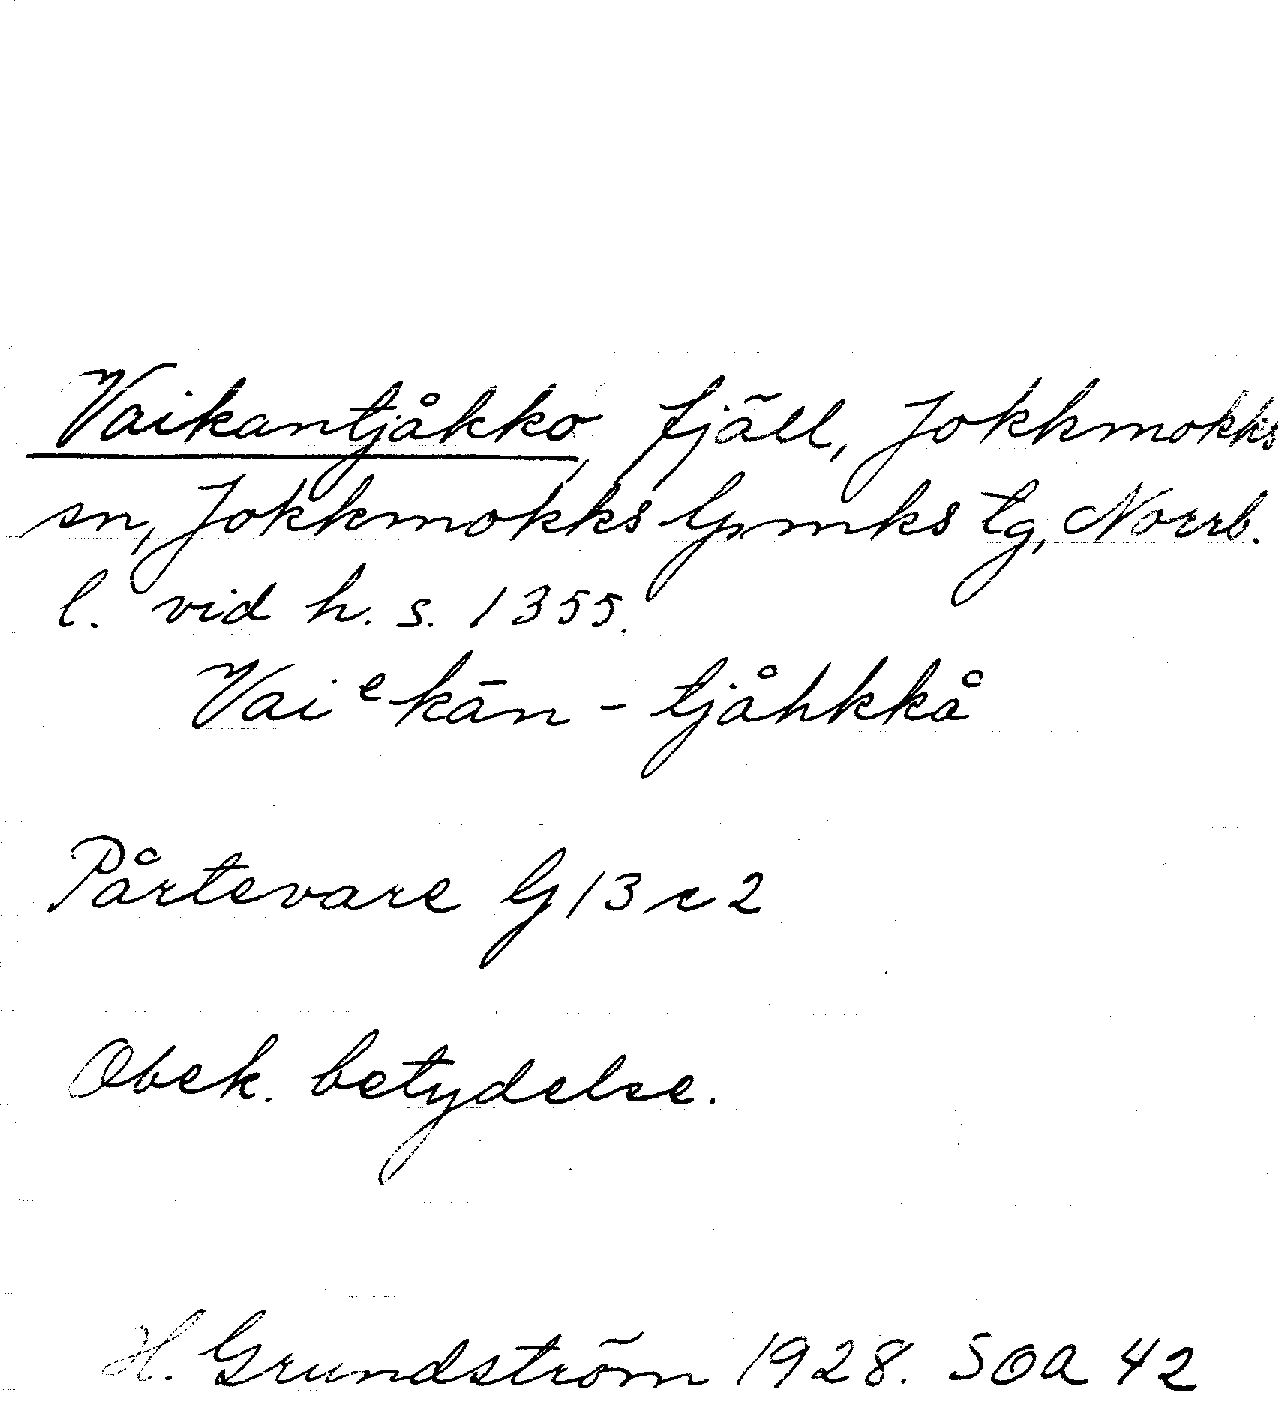 Vaikantjåkko, fjäll, Jokkmokks
sn, Jokkmokks lpmks tg, Norrb.
l. vid h. s. 1355.
Vaiᵉkān-tjåhkkå
Pårtevare G 13 c 2
Obek. betydelse.
H. Grundström 1928. SOA 42